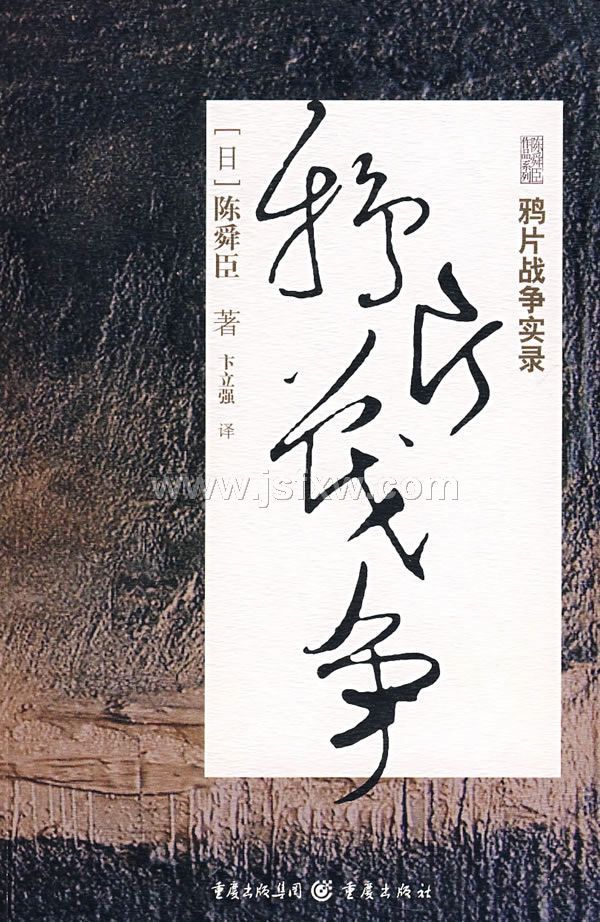 陈舜臣
作品系列
鸦片战争实录
鸦片战争
[日]陈舜臣 著
卞立强 译
www.jsfxw.com
重庆出版集团 重庆出版社